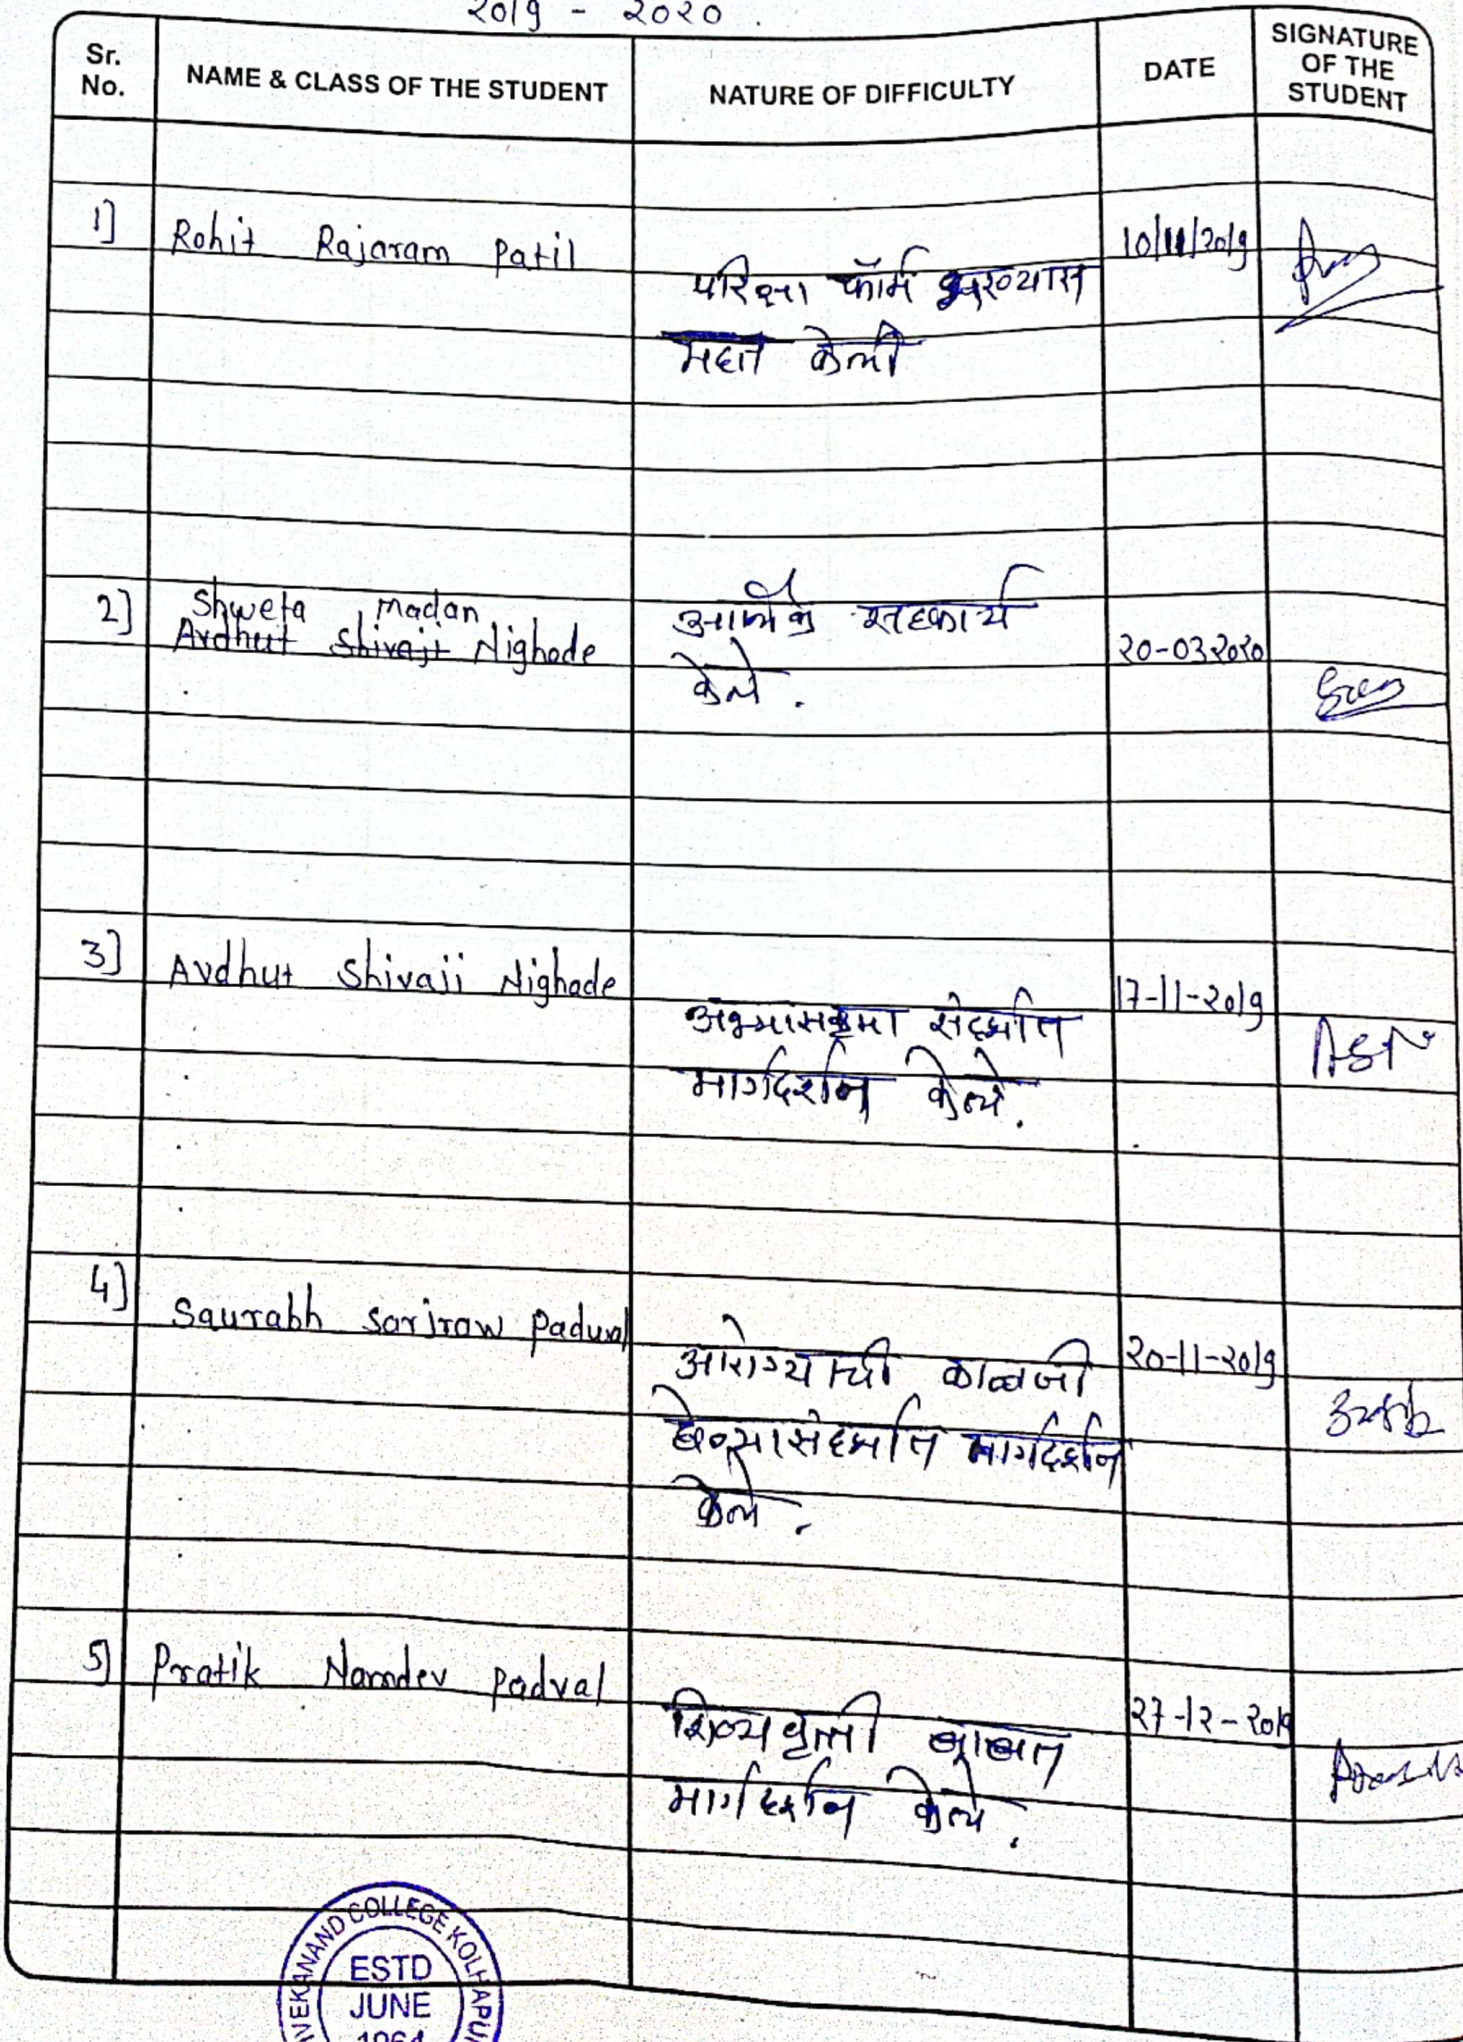 २०१९ - २०२०.
Sr. No.
NAME & CLASS OF THE STUDENT
NATURE OF DIFFICULTY
DATE
SIGNATURE OF THE STUDENT
1] Rohit Rajaram Patil
परिक्षा फॉर्म भरण्यास
10/11/2019
मदत केली
2] Shweta Madan
Avdhut Shivaji Nighade
आर्थिक सहकार्य
केले.
२०-03२०२०
3] Avdhut Shivaji Nighade
अभ्यासक्रमा संदर्भात
17-11-2019
मार्गदर्शन केले.
4] Saurabh Sarjraw Padval
आरोग्याची काळजी
२०-11-२०19
घेण्यासंदर्भात मार्गदर्शन
केले.
5] Pratik Namdev Padval
शिष्यवृत्ती बाबत
२7-1२-२०19
मार्गदर्शन केले.
VIVEKANAND COLLEGE KOLHAPUR
ESTD
JUNE
1964